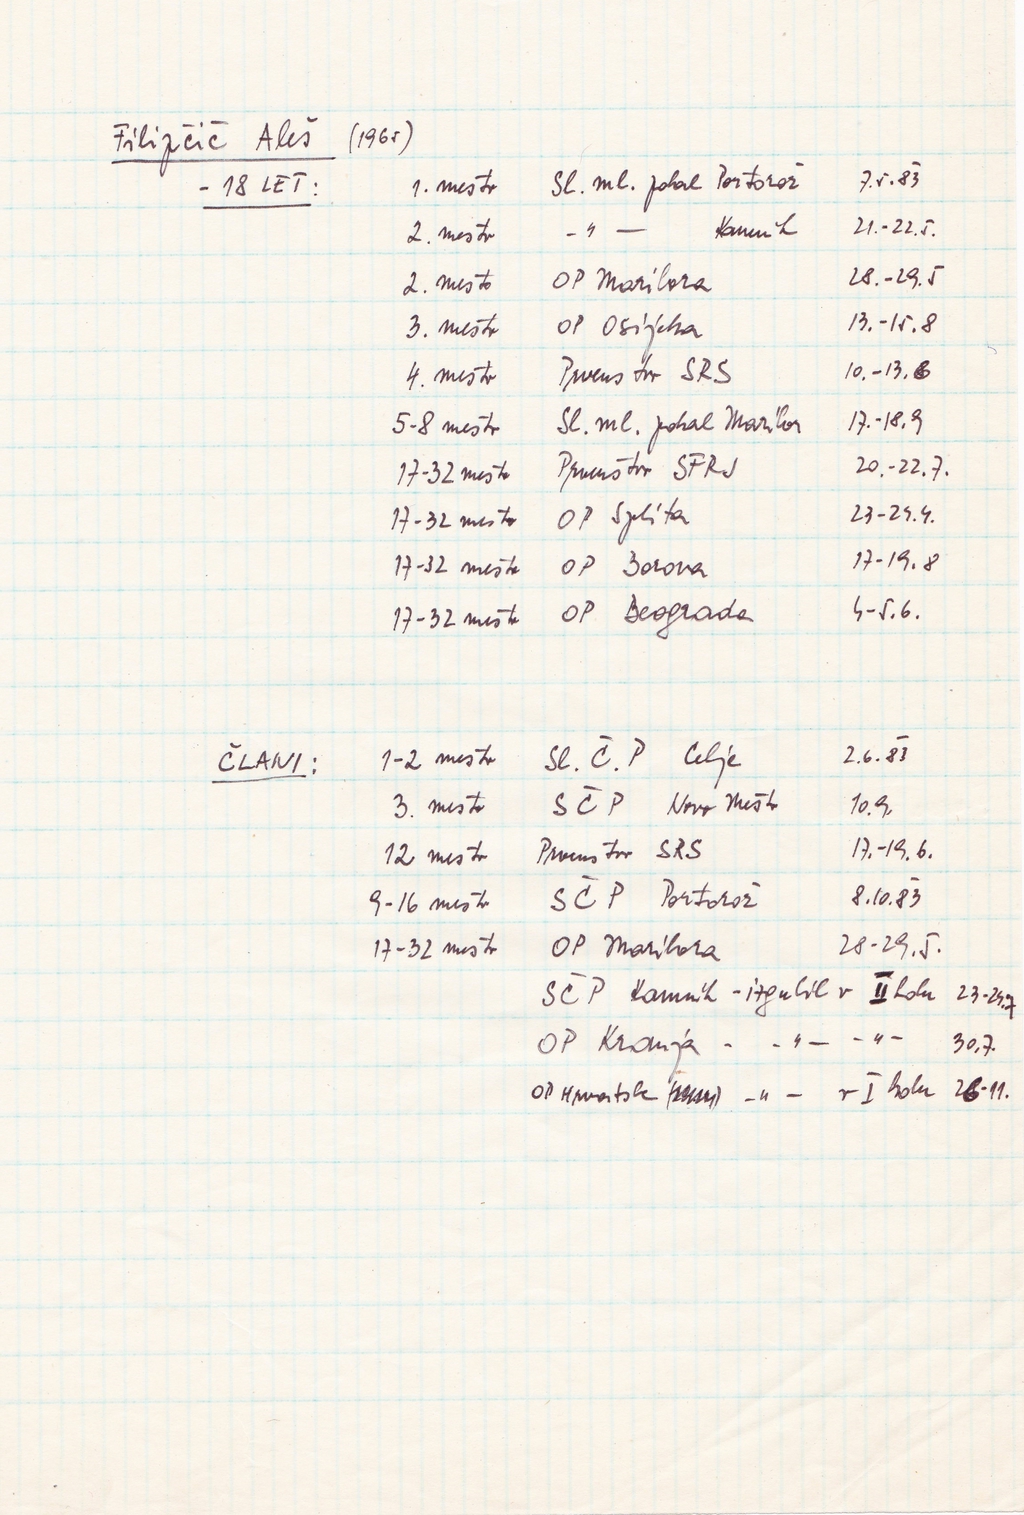 Filipčič Aleš (1965)
- 18 LET: 1. mesto Sl. ml. pokal Portorož 7.5.83
2. mesto -"- Kamnik 21.-22.5.
2. mesto OP Maribora 28.-29.5
3. mesto OP Osijeka 13.-15.8
4. mesto Prvenstvo SRS 10.-13.6
5-8 mesto Sl. ml. pokal Maribor 17.-18.9
17-32 mesto Prvenstvo SFRJ 20.-22.7.
17-32 mesto OP Splita 23-24.4.
17-32 mesto OP Borova 17-19.8
17-32 mesto OP Beograda 4-5.6.
ČLANI: 1-2 mesto Sl. Č. P Celje 2.6.83
3. mesto SČP Novo Mesto 10.9.
12 mesto Prvenstvo SRS 17.-19.6.
9-16 mesto SČP Portorož 8.10.83
17-32 mesto OP Maribora 28-29.5.
SČP Kamnik - izgubil v II kolu 23-24.7
OP Kranja - -"- -"- 30.7.
OP Hrvatske -"- v I kolu 26-11.